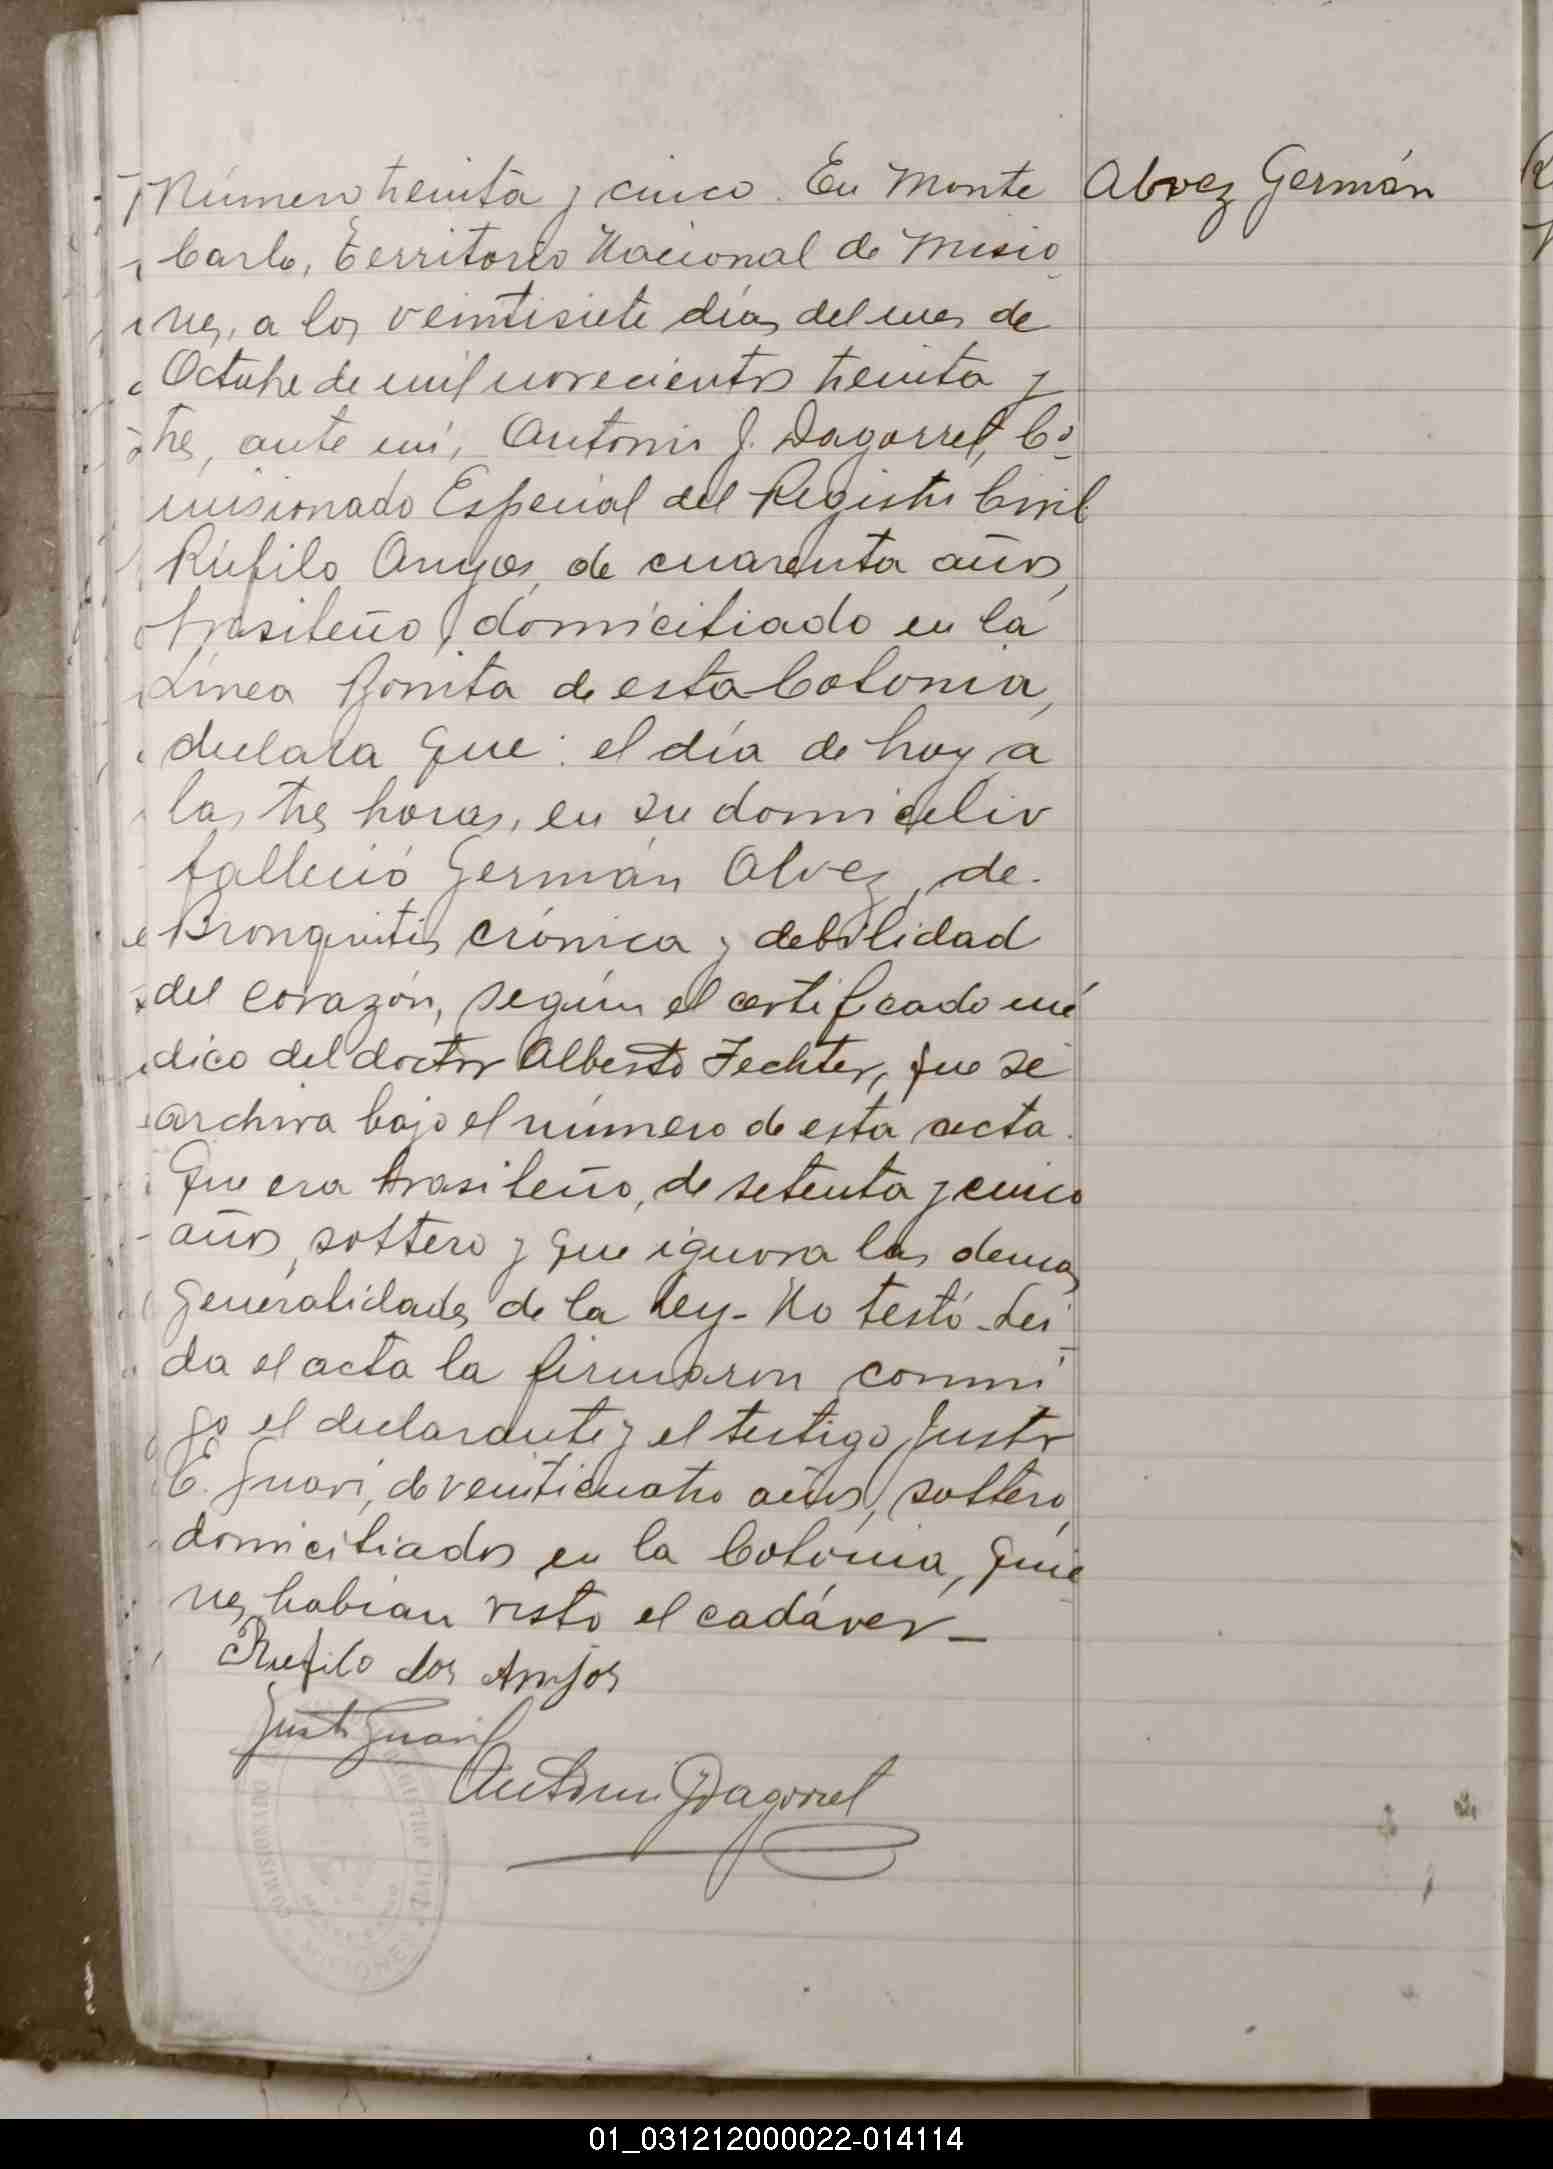 Número treinta y cinco. En Monte
Carlo, Territorio Nacional de Misio
nes, a los veintisiete días del mes de
Octubre de mil novecientos treinta y
tres, ante mí, Antonio J. Dagorret, Co
misionado Especial del Registro Civil
Rúfilo Anyos, de cuarenta años,
brasileño, domiciliado en la
Línea Bonita de esta Colonia,
declara que: el día de hoy a
las tres horas, en su domicilio
falleció Germán Alvez, de
Bronquitis crónica y debilidad
del corazón, según el certificado mé
dico del doctor Alberto Fechter, que se
archiva bajo el número de esta acta.
Que era brasileño, de setenta y cinco
años, soltero y que ignora las demas
generalidades de la ley- No testó- Leí
da el acta la firmaron conmi
go el declarante y el testigo Justo
E. Guari, de veinticuatro años, soltero,
domiciliados en la Colonia, quie
nes habían visto el cadáver-
Rufilo dos Anjos
Antonio J Dagorret
COMISIONADO
REGISTRO CIVIL
MISIONES
Alvez Germán
01_031212000022-014114